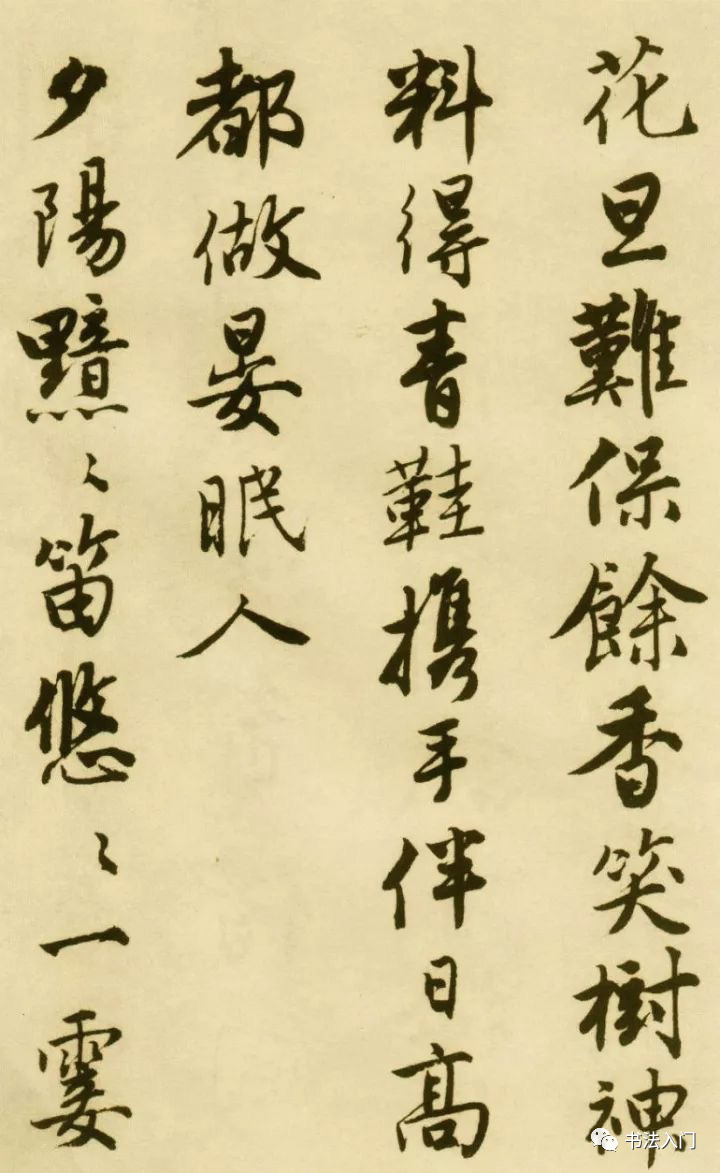 花旦難保餘香笑樹神
料得青鞋携手伴日高
都做晏眠人
夕陽黯〻笛悠〻一霎
书法入门